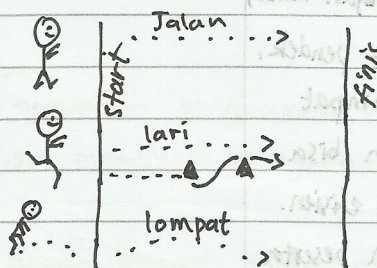 Jalan
start
finish
lari
lompat